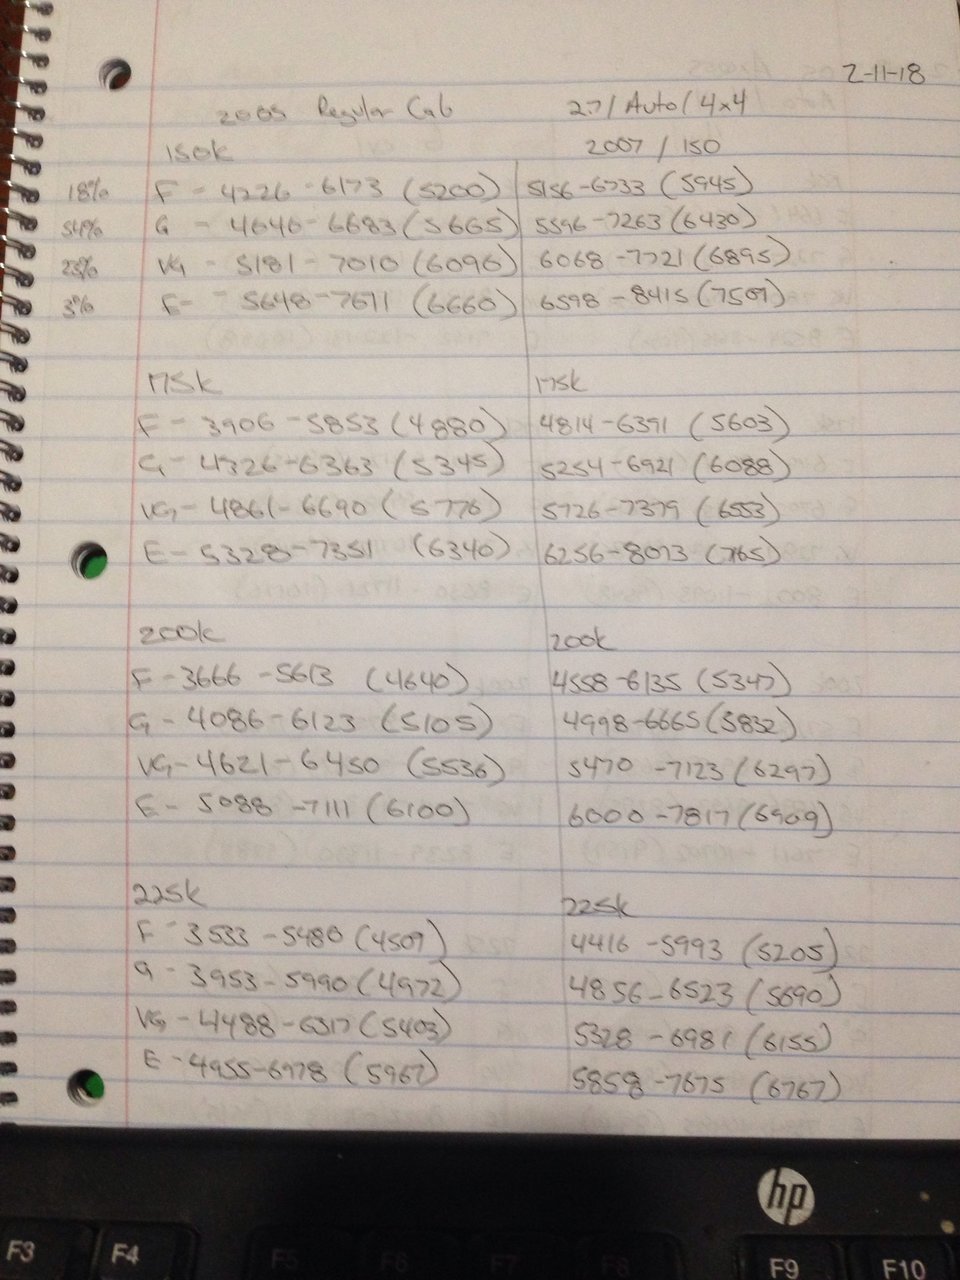 2-11-18
2005 Regular Cab 2.7/Auto/4x4
150k 2007/150
18% F - 4226-6173 (5200) 5156-6733 (5945)
54% G - 4646-6683 (5665) 5596-7263 (6430)
23% VG - 5181-7010 (6096) 6068-7721 (6895)
3% E - 5648-7671 (6660) 6598-8415 (7507)
175k 175k
F - 3906-5853 (4880) 4814-6391 (5603)
G - 4326-6363 (5345) 5254-6921 (6088)
VG - 4861-6690 (5776) 5726-7379 (6553)
E - 5328-7351 (6340) 6256-8073 (765)
200k 200k
F - 3666-5613 (4640) 4558-6135 (5347)
G - 4086-6123 (5105) 4998-6665 (5832)
VG - 4621-6450 (5536) 5470-7123 (6297)
E - 5088-7111 (6100) 6000-7817 (6909)
225k 225k
F - 3533-5480 (4507) 4416-5993 (5205)
G - 3953-5990 (4972) 4856-6523 (5690)
VG - 4488-6317 (5403) 5328-6981 (6155)
E - 4955-6978 (5967) 5858-7675 (6767)
hp
F3 F4 F5 F6 F7 F8 F9 F10